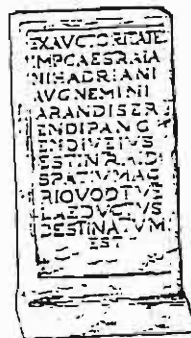 EX AVCTORITATE
IMP CAES RAIA
NI HADRIANI
AVG NEMINI
ARANDI SER
ENDI PANG
ENDIVE IVS
EST INTRA ID
SPATIVM AG
RI QVOD TVTE
LAE DVCTVS
DESTINATVM
EST